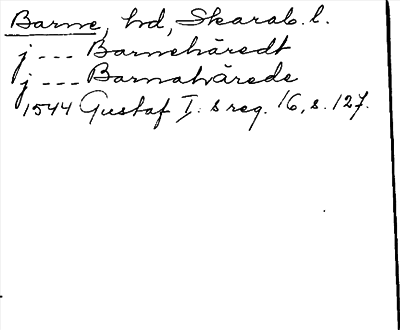 Barne, hd, Skarab. l.
j --- Barnehäredt
j --- Barnahärede
1544 Gustaf I:s reg. 16, s. 127.